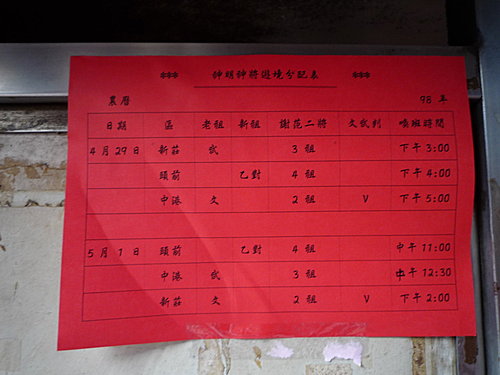 *** 神明神將遊境分配表 ***
農曆 98 年
日期 區 老祖 新祖 謝范二將 文武判 喚班時間
4月29日 新莊 武 3 組 下午3:00
頭前 乙對 4 組 下午4:00
中港 文 2 組 V 下午5:00
5月1日 頭前 乙對 4 組 中午11:00
中港 武 3 組 中午12:30
新莊 文 2 組 V 下午2:00